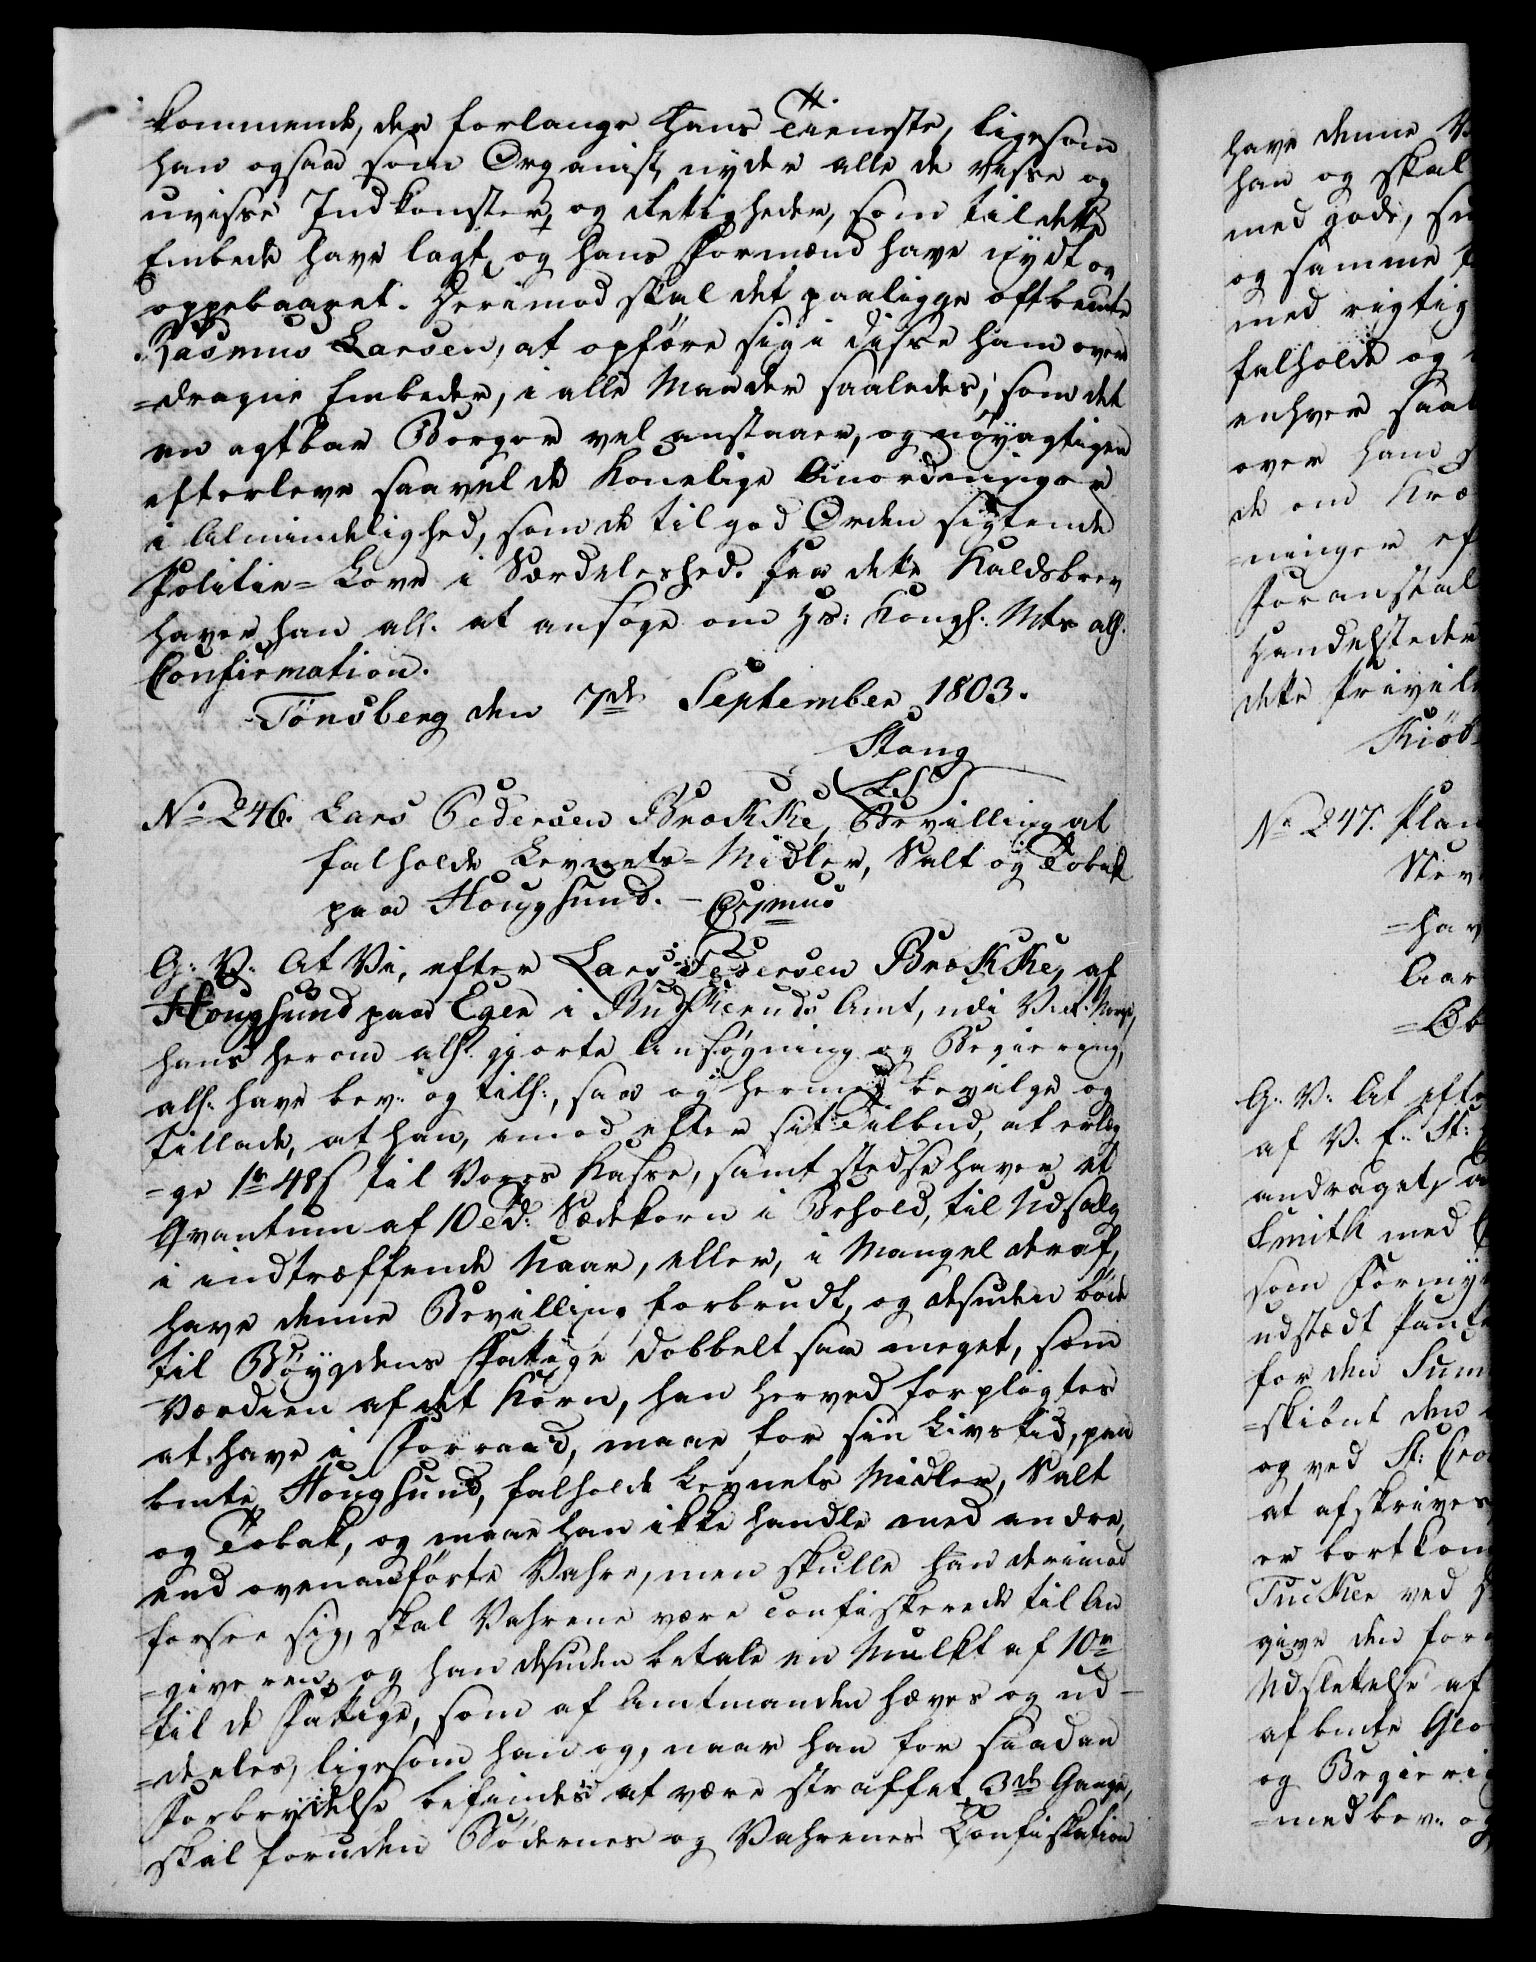 kommende, der forlange hans Tieneste, ligesom
han ogsaa som Organist nyder alle de visse og
uvisse Indkomster, og Rettigheder, som til dette
Embede have lagt, og hans Formænd have nydt og
oppebaaret. Herimod skal det paaligge oftbemte
Rasmus Larsen, at opføre sig i disse ham over
=dragne Embeder, i alle Maader saaledes, som det
en agtbar Borger vel anstaaer, og nøyagtigen
efterleve saavel de Konelige Anordninger
i Almindelighed, som de til god Orden sigtende
Politie=Love i Særdeleshed. Paa dette Kaldsbrev
haver han all. at ansøge om Hs: Kongl: Mts all.
Confirmation.
Tönsberg den 7de September 1803.
Stang
(LS)
No 246. Lars Pedersen Brække, Bevilling at
falholde Levnets=Midler, Salt og Tobak
paa Hougsund. –
G: V: At Vi, efter Lars Pedersen Brække, af
Hougsund paa Eger i Budskeruds Amt, udi V. R. Norge,
hans herom all. giorte Ansøgning og Begiering,
all: have bev: og till:, saa og hermed bevilge og
tillade, at han, imod efter sit Tilbud, at erlæg
=ge 1 rd 48 s til Vores Kasse, samt stedse haver et
Qvantum af 10 Td: Sædekorn i Behold, til Udsalg
i indtræffende Uaar, eller, i Mangel deraf,
have denne Bevilling forbrudt, og desuden bøde
til Bøygdens Fattige dobbelt saa meget, som
Værdien af det Korn, han herved forpligtes
at have i Forraad, maae for sin Livstid, paa
bemte Hougsund, falholde Levnets Midler, Salt
og Tobak, og maae han ikke handle med andre,
end ovenanførte Vahre, men skulle han derimod
forsee sig, skal Vahrene være confiskerede til An
=giveren, og han desuden betale en Mulkt af 10 rd
til de Fattige, som af Amtmanden hæves og ud
=deeles, ligesom han og, naar han for saadan
Forbrydelse befindes at være straffet 3de Gange,
skal foruden Bödernes og Vahrenes Confiskation
have denne
han og skal
med gode,
og samme
med rigtig
falholde og
enhver saa
over ham
de om
=ninger ef
Foranstal
Handelsteder
dette Privile
Kiöb
No 247.
=hav
Aar
G: V: At efte
af V. E. St:
andraget,
Smith med
som Formy
udstædt Pante
for den Sum
=skiønt den
og ved St: Croi
at afskrives
er bortkom
Tucker ved
give den for
Udslettelse af
af bemte Geo
og Begieri
=med bev: og